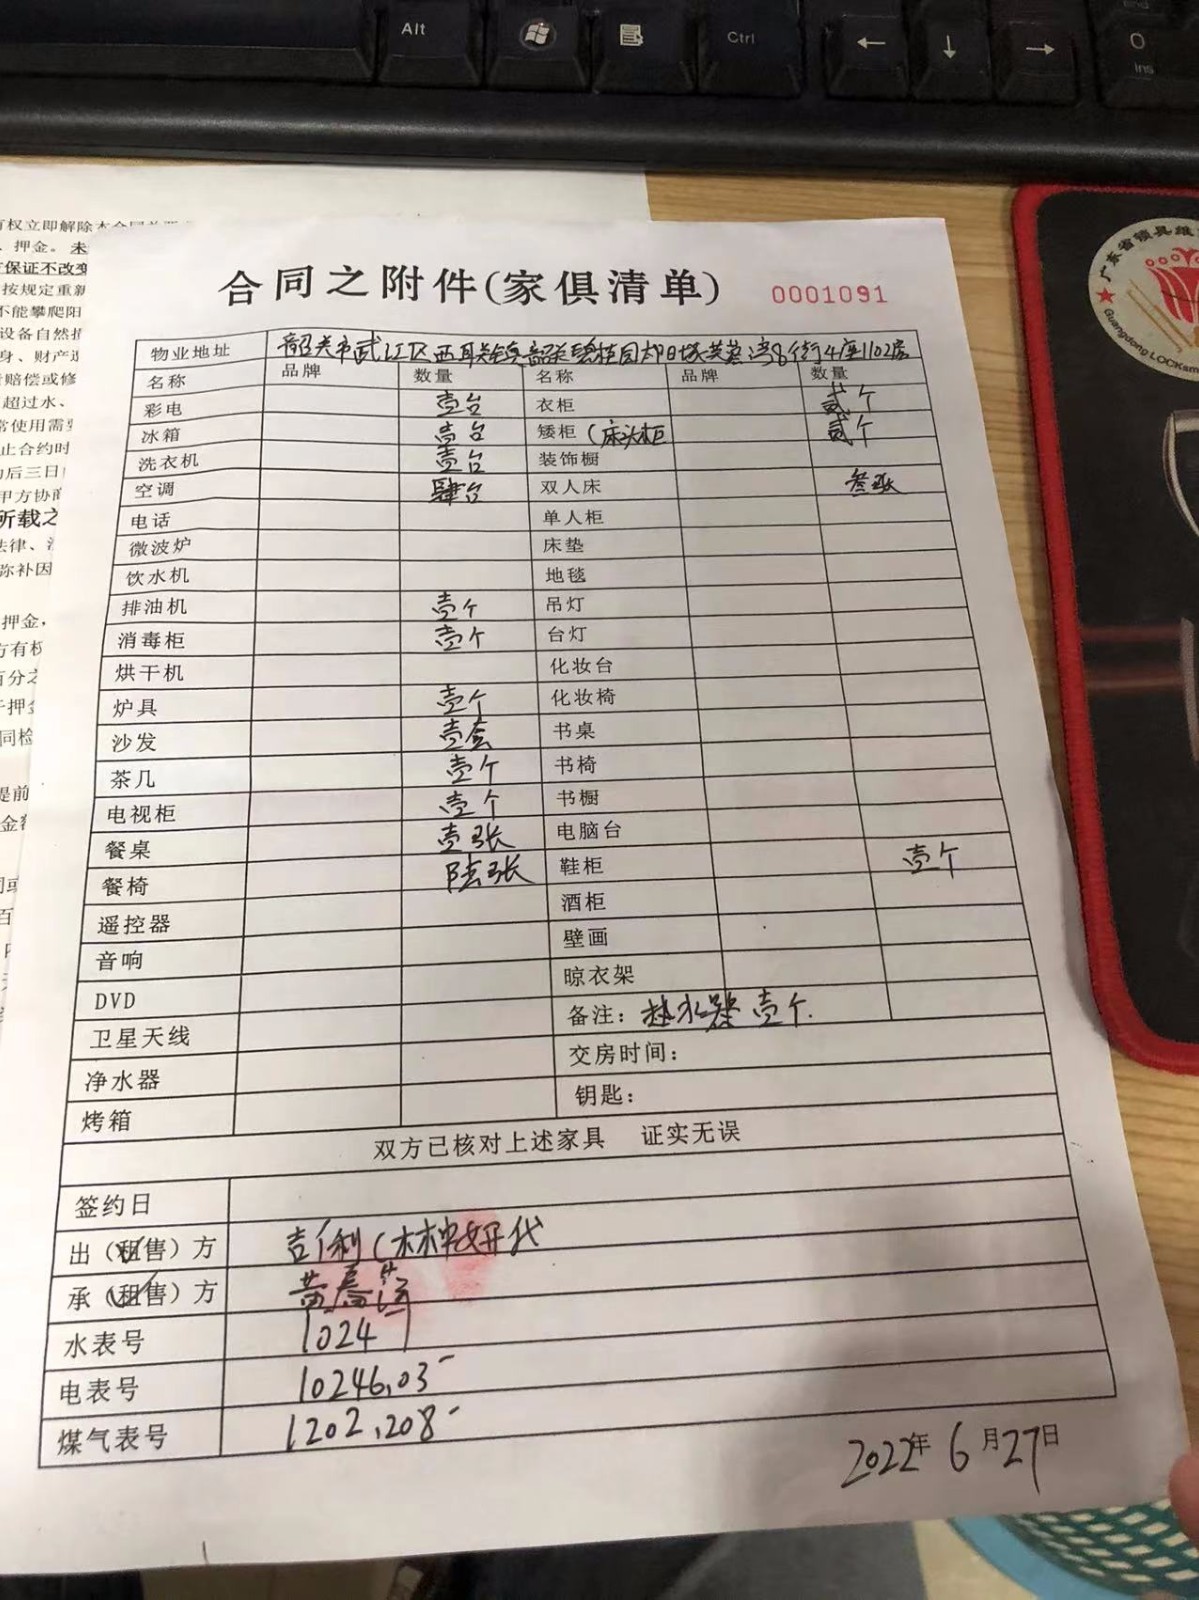 Alt
Ctrl
←
↓
→
0
Ins
押金。未
保证不改变
按规定重新
不能攀爬阳
设备自然损
身、财产造
赔偿或修
超过水、
常使用需要
止合约时
后三日
甲方协商
所载之
法律、
弥补因
押金，
方有权
百分之
押金
同检
提前
金额
广东省锁具维
Guangdong LOCKsm
合同之附件(家俱清单) 0001091
物业地址 韶关市武江区西联镇韶关碧桂园太阳城芙蓉湾8街4座1102房
名称 品牌 数量 名称 品牌 数量
彩电 壹台 衣柜 贰个
冰箱 壹台 矮柜（床头柜 贰个
洗衣机 壹台 装饰橱
空调 肆台 双人床 叁张
电话 单人柜
微波炉 床垫
饮水机 地毯
排油机 壹个 吊灯
消毒柜 壹个 台灯
烘干机 化妆台
炉具 壹个 化妆椅
沙发 壹套 书桌
茶几 壹个 书椅
电视柜 壹个 书橱
餐桌 壹张 电脑台
餐椅 陆张 鞋柜 壹个
遥控器 酒柜
音响 壁画
DVD 晾衣架
卫星天线 备注：热水器壹个.
净水器 交房时间：
烤箱 钥匙：
双方已核对上述家具 证实无误
签约日
出（租售）方
承（租售）方 黄
水表号 1024
电表号 10246.03
煤气表号 1202.208
2022年6月27日